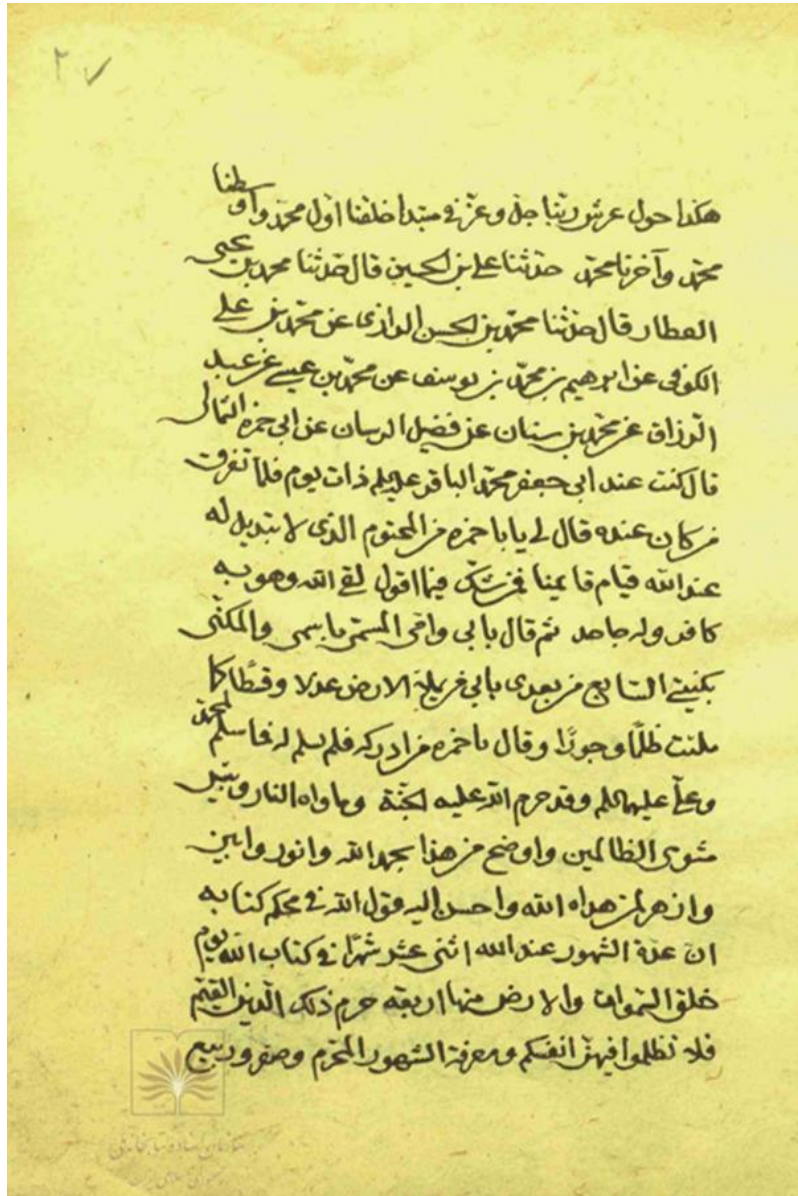 ٢٧
هکذا حول عرش ربنا جل وعز في مبتدا خلقنا اول محمد واوسطنا
محمد وآخرنا محمد حدثنا علي بن الحسين قال حدثنا محمد بن يحيى
العطار قال حدثنا محمد بن الحسن الرازى عن محمد بن علي
الكوفى عن ابرهيم بن محمد بن يوسف عن محمد بن عيسى عن عبد
الرزاق عن محمد بن سنان عن فضيل الرسان عن ابى حمزه الثمالى
قال كنت عند ابى جعفر محمد الباقر عليه ذات يوم فلما تفرق
من كان عنده قال لي يابا حمزه من المحتوم الذى لا تبديل له
عند الله قيام قائمنا فمن شك فيما اقول لقي الله وهو به
كافر وله جاحد ثم قال بابى وامى المسمى باسمى والمكنى
بكنيتى السابع من بعدى بابى من يملأ الارض عدلا وقسطا كما
ملئت ظلما وجورًا وقال يا حمزه من ادركه فلم يسلم له فما سلم لمحمد
وعلي عليهما وقد حرم الله عليه الجنة وماواه النار وبئس
مثوى الظالمين واوضح من هذا بحمد الله وانور وابين
وازهر لمن هداه الله واحسن اليه قول الله في محكم كتابه
ان عدة الشهور عند الله اثنى عشر شهرًا في كتاب الله يوم
خلق السموات والارض منها اربعة حرم ذلك الدين القيم
فلا تظلموا فيهن انفسكم ومعرفة الشهور المحرم وصفر وربيع